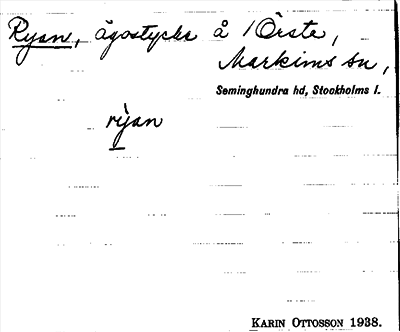 Ryan, ägostycke å /Örste,
Markims sn,
Seminghundra hd, Stockholms l.
rijan
KARIN OTTOSSON 1938.